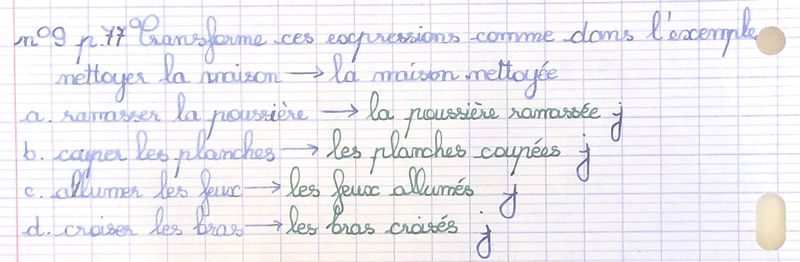 n°9 p.77 Transforme ces expressions comme dans l'exemple.
nettoyer la maison → la maison nettoyée
a. ramasser la poussière → la poussière ramassée j
b. couper les planches → les planches coupées j
c. allumer les feux → les feux allumés. j
d. croiser les bras → les bras croisés j